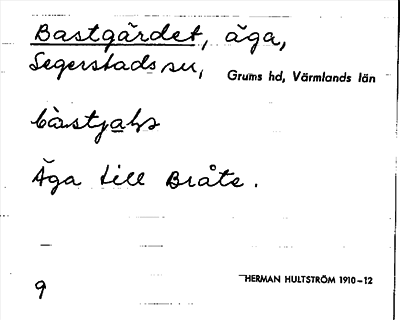 Bastgärdet, äga,
Segerstads sn, Grums hd, Värmlands län
Äga till Bråte.
HERMAN HULTSTRÖM 1910-12
9